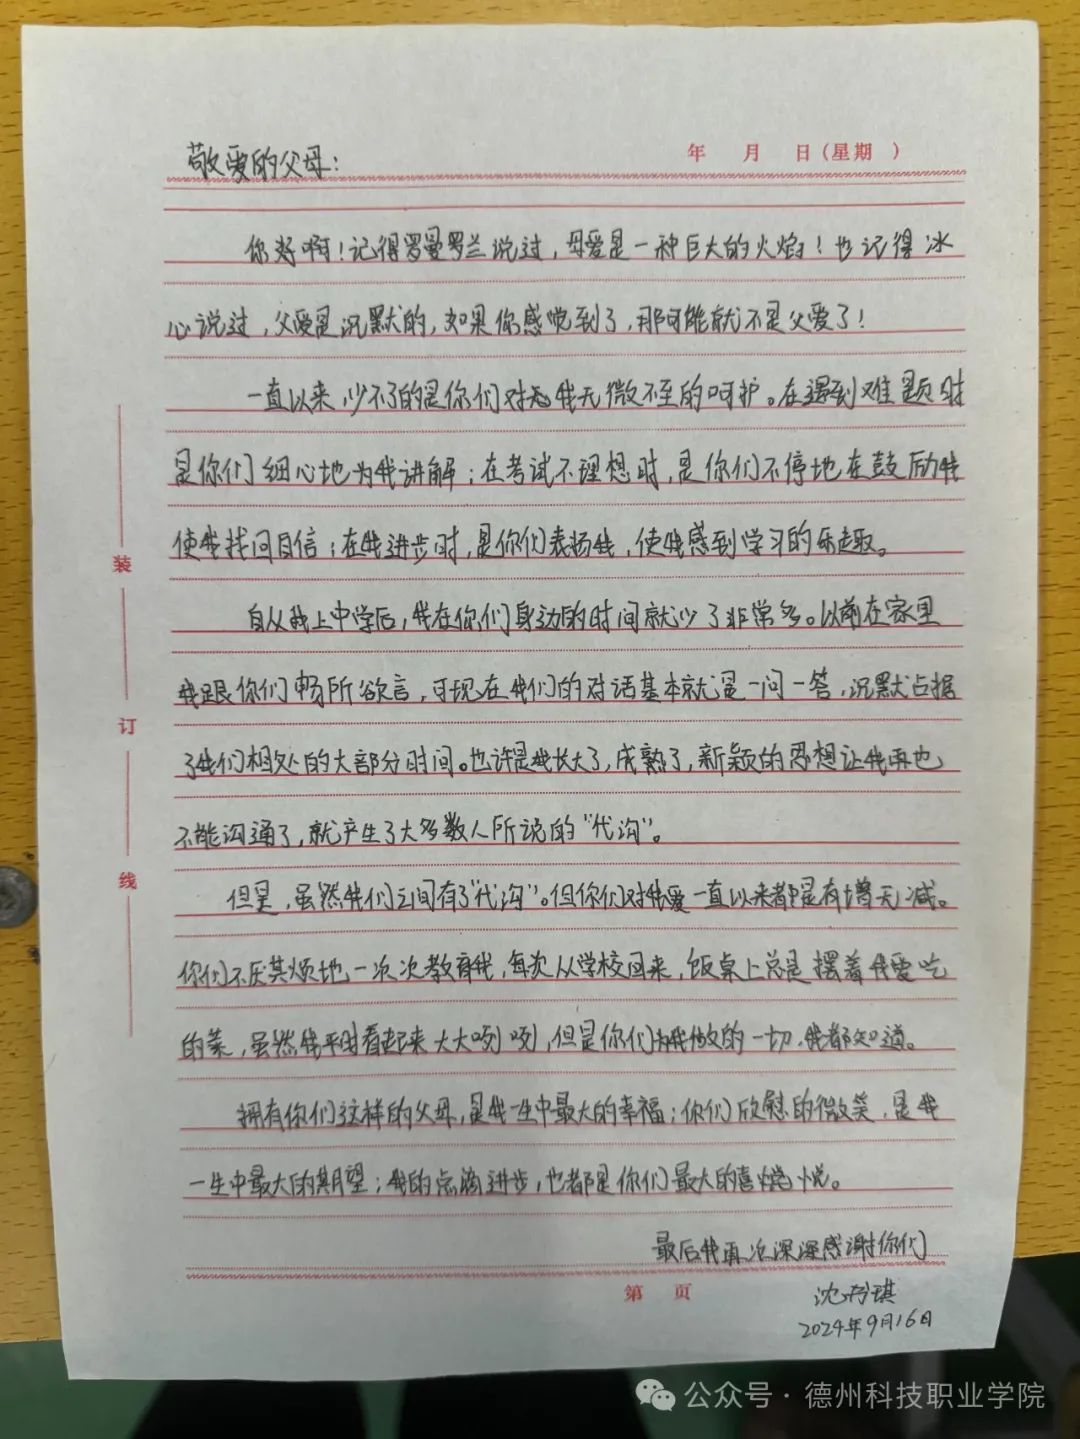 敬爱的父母：
年 月 日（星期 ）
你好啊！记得罗曼罗兰说过，母爱是一种巨大的火焰！也记得冰
心说过，父爱是沉默的，如果你感觉到了，那可能就不是父爱了！
一直以来，少不了的是你们对我无微不至的呵护。在遇到难题时
是你们细心地为我讲解；在考试不理想时，是你们不停地在鼓励我
使我找回自信；在我进步时，是你们表扬我，使我感到学习的乐趣。
自从我上中学后，我在你们身边的时间就少了非常多。以前在家里
我跟你们畅所欲言，可现在我们的对话基本就是一问一答，沉默占据
了我们相处的大部分时间。也许是我长大了，成熟了，新颖的思想让我再也
不能沟通了，就产生了大多数人所说的“代沟”。
但是，虽然我们之间有了“代沟”。但你们对我爱一直以来都是有增无减。
你们不厌其烦地一次次教育我，每次从学校回来，饭桌上总是摆着我爱吃
的菜，虽然我平时看起来大大咧咧，但是你们为我做的一切，我都知道。
拥有你们这样的父母，是我一生中最大的幸福；你们欣慰的微笑，是我
一生中最大的期望；我的点滴进步，也都是你们最大的喜悦。
最后我再次深深感谢你们
第 页
沈 琪
2024年9月16日
装
订
线
公众号·德州科技职业学院